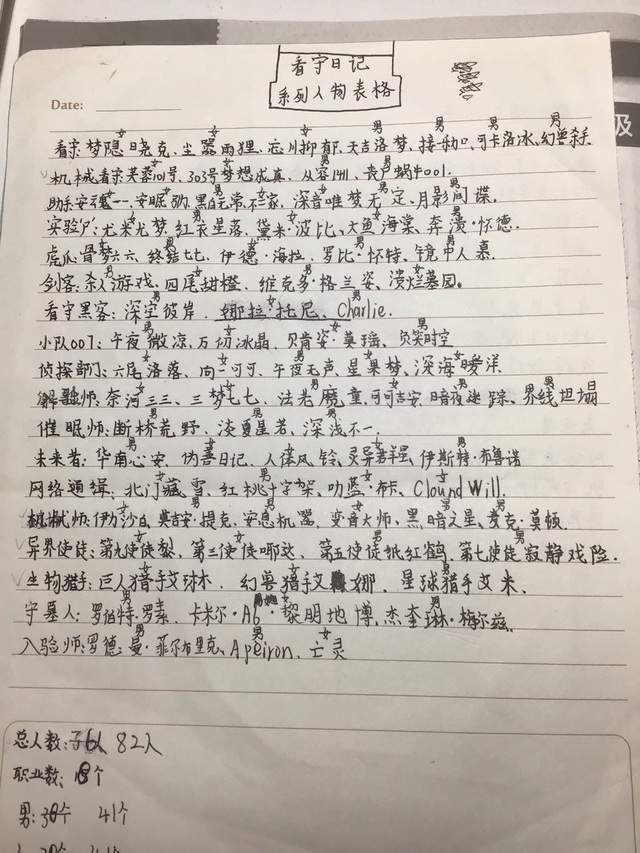 看守日记
系列人物表格
Date:
看宗:梦隐晓克、尘嚣雨狸、忘川抑郁、天吉洛梦、接一和口、可卡洛冰、幻兽杀手
机械看宗:芙蓉101号、303号梦想求真、从容1911、丧尸蜗牛001.
助杀:安魂一一、安眠、黑白无常不二家、深音唯梦无定、月影间谍.
实验尸:尤米尤梦、红衣星落、黛米·波比、大鱼海棠、奔溃·怀德.
虎爪:骨梦六六、终结七七、伊德·海拉、罗比·怀特、镜中人慕.
剑客:杀人游戏、四尾甜橙、维克多·格兰姿、溃烂墓园。
看守黑客:深空彼岸、娜拉·托尼、Charlie.
小队007:午夜微凉、万切冰晶、贝肯姿·莫瑶、负笑时空
侦探部门:六尾洛落、向一可可、午夜无声、星果梦、深海暖洋
解师:奈河三三、三梦七七、法老魔童、可可吉安、暗夜迷踪、界线坦塌
催眠师:断桥荒野、淡夏星若、深浅不一.
未来者:华南心安、伪善日记、人体风铃、灵异若羊星、伊斯特·布鲁诺
网络通缉:北门藏雪、红桃十字架、叻蓝·布卡、Clound Will.
机械师:伊万沙白、莫吉安·提克、安息机器、变音大师、黑暗之星、麦克·莫顿.
异界使徒:第九使徒裂、第三使徒哪达、第五使徒纸红鹤、第七使徒寂静戏险.
生物猎手:巨人猎手艾琳木、幻兽猎手艾娜、星球猎手艾米、
守墓人:罗伯特·罗素、卡米尔·Ab·黎明地博、杰奎琳·梅尔兹.
入验师:罗德·曼·菲尔布里克、Apeiron、亡灵
总人数: 82人
职业数: 个
男: 41个